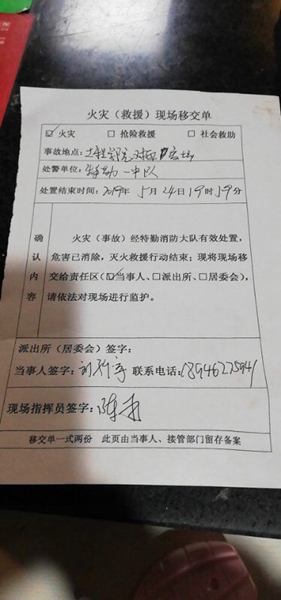 火灾（救援）现场移交单
☑火灾 □抢险救援 □社会救助
事故地点：
处警单位：特勤一中队
处置结束时间：2019年5月24日19时59分
确认内容
火灾（事故）经特勤消防大队有效处置，
危害已消除，灭火救援行动结束；现将现场移
交给责任区（☑当事人、□派出所、□居委会），
请依法对现场进行监护。
派出所（居委会）签字：
当事人签字： 联系电话：
现场指挥员签字：
移交单一式两份 此页由当事人、接管部门留存备案